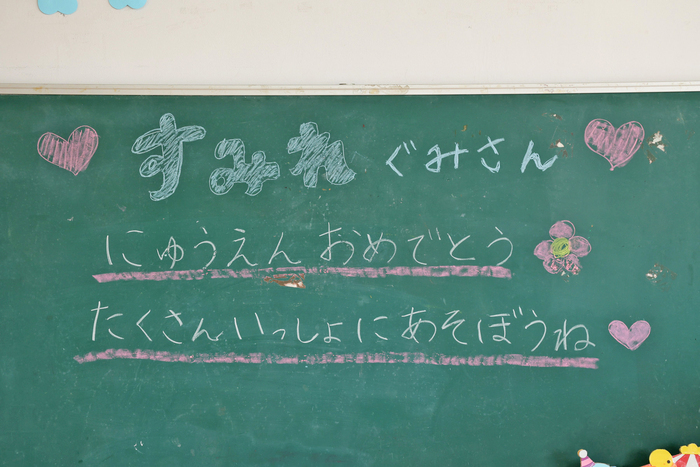 すみれ ぐみさん
にゅうえん おめでとう
たくさんいっしょにあそぼうね